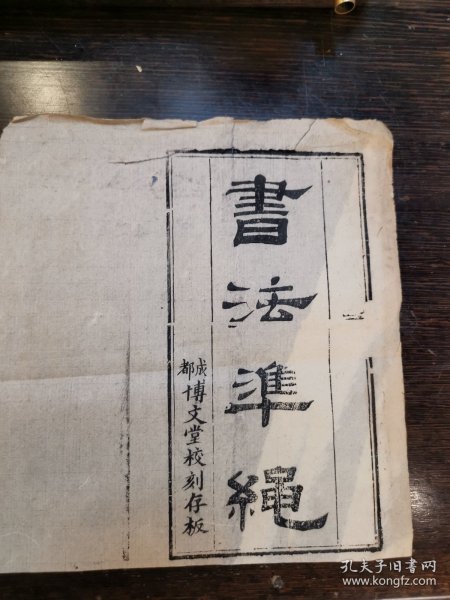 書法準繩
成都博文堂校刻存板
孔夫子旧书网
www.kongfz.com